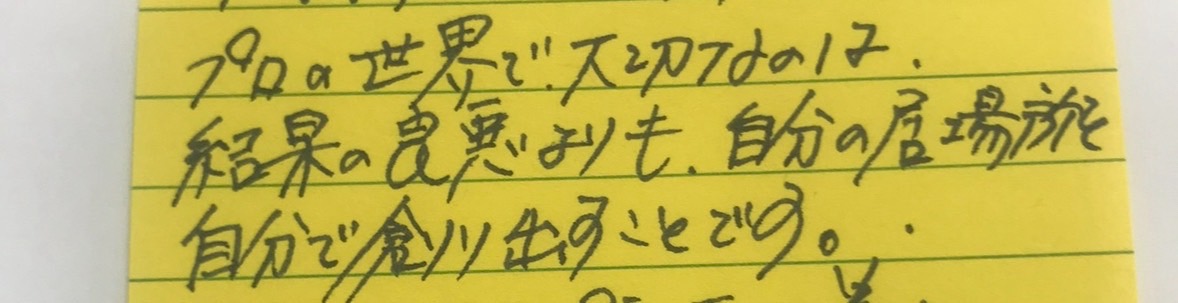 プロの世界で、大切なのは、
結果の良悪よりも、自分の居場所を
自分で創り出すことです。